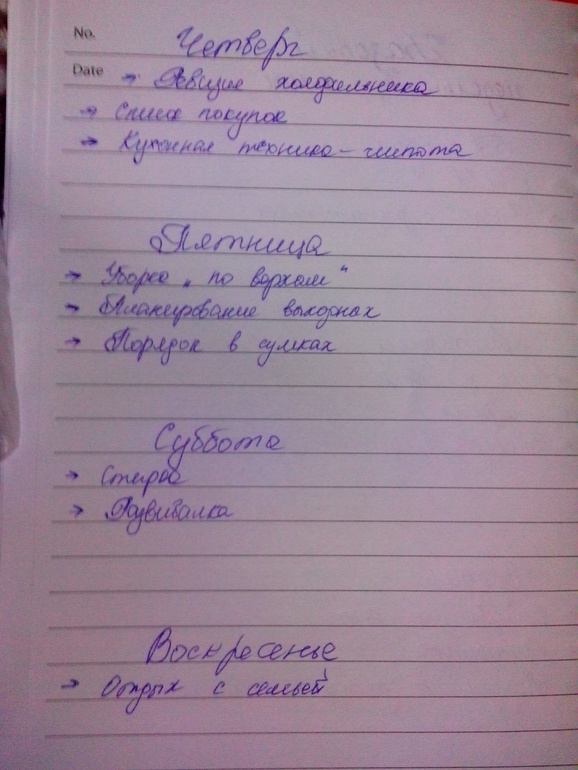 No.
Четверг
Date → Ревизия холодильника
→ Список покупок
→ Кухонная техника - чистота
Пятница
→ Уборка „по верхам"
→ Планирование выходных
→ Порядок в сумках
Суббота
→ Стирка
→ Развивалка
Воскресенье
→ Отдых с семьей